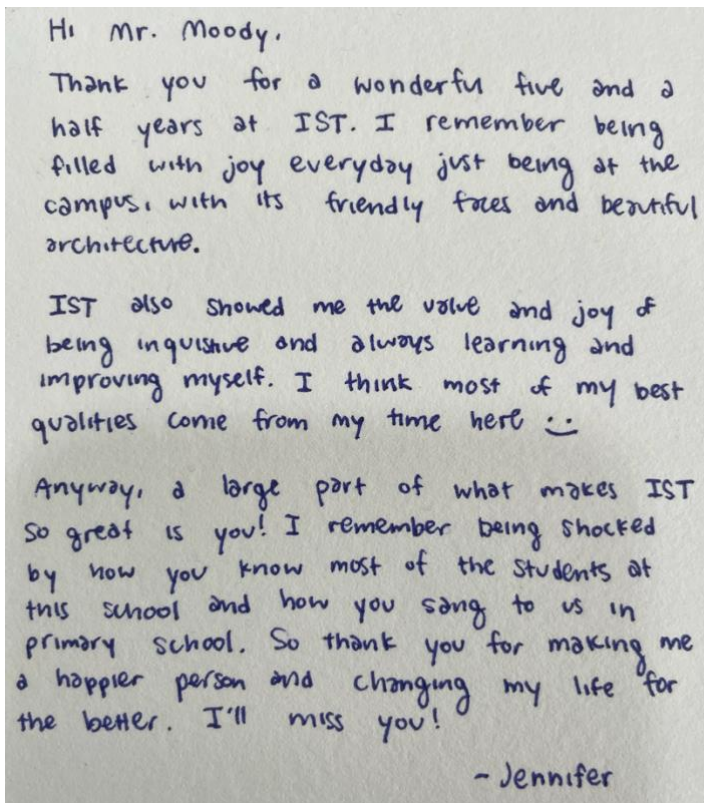 Hi Mr. Moody,
Thank you for a wonderful five and a
half years at IST. I remember being
filled with joy everyday just being at the
campus, with its friendly faces and beautiful
architecture.
IST also showed me the value and joy of
being inquisitive and always learning and
improving myself. I think most of my best
qualities come from my time here :)
Anyway, a large part of what makes IST
so great is you! I remember being shocked
by how you know most of the students at
this school and how you sang to us in
primary school. So thank you for making me
a happier person and changing my life for
the better. I'll miss you!
~Jennifer